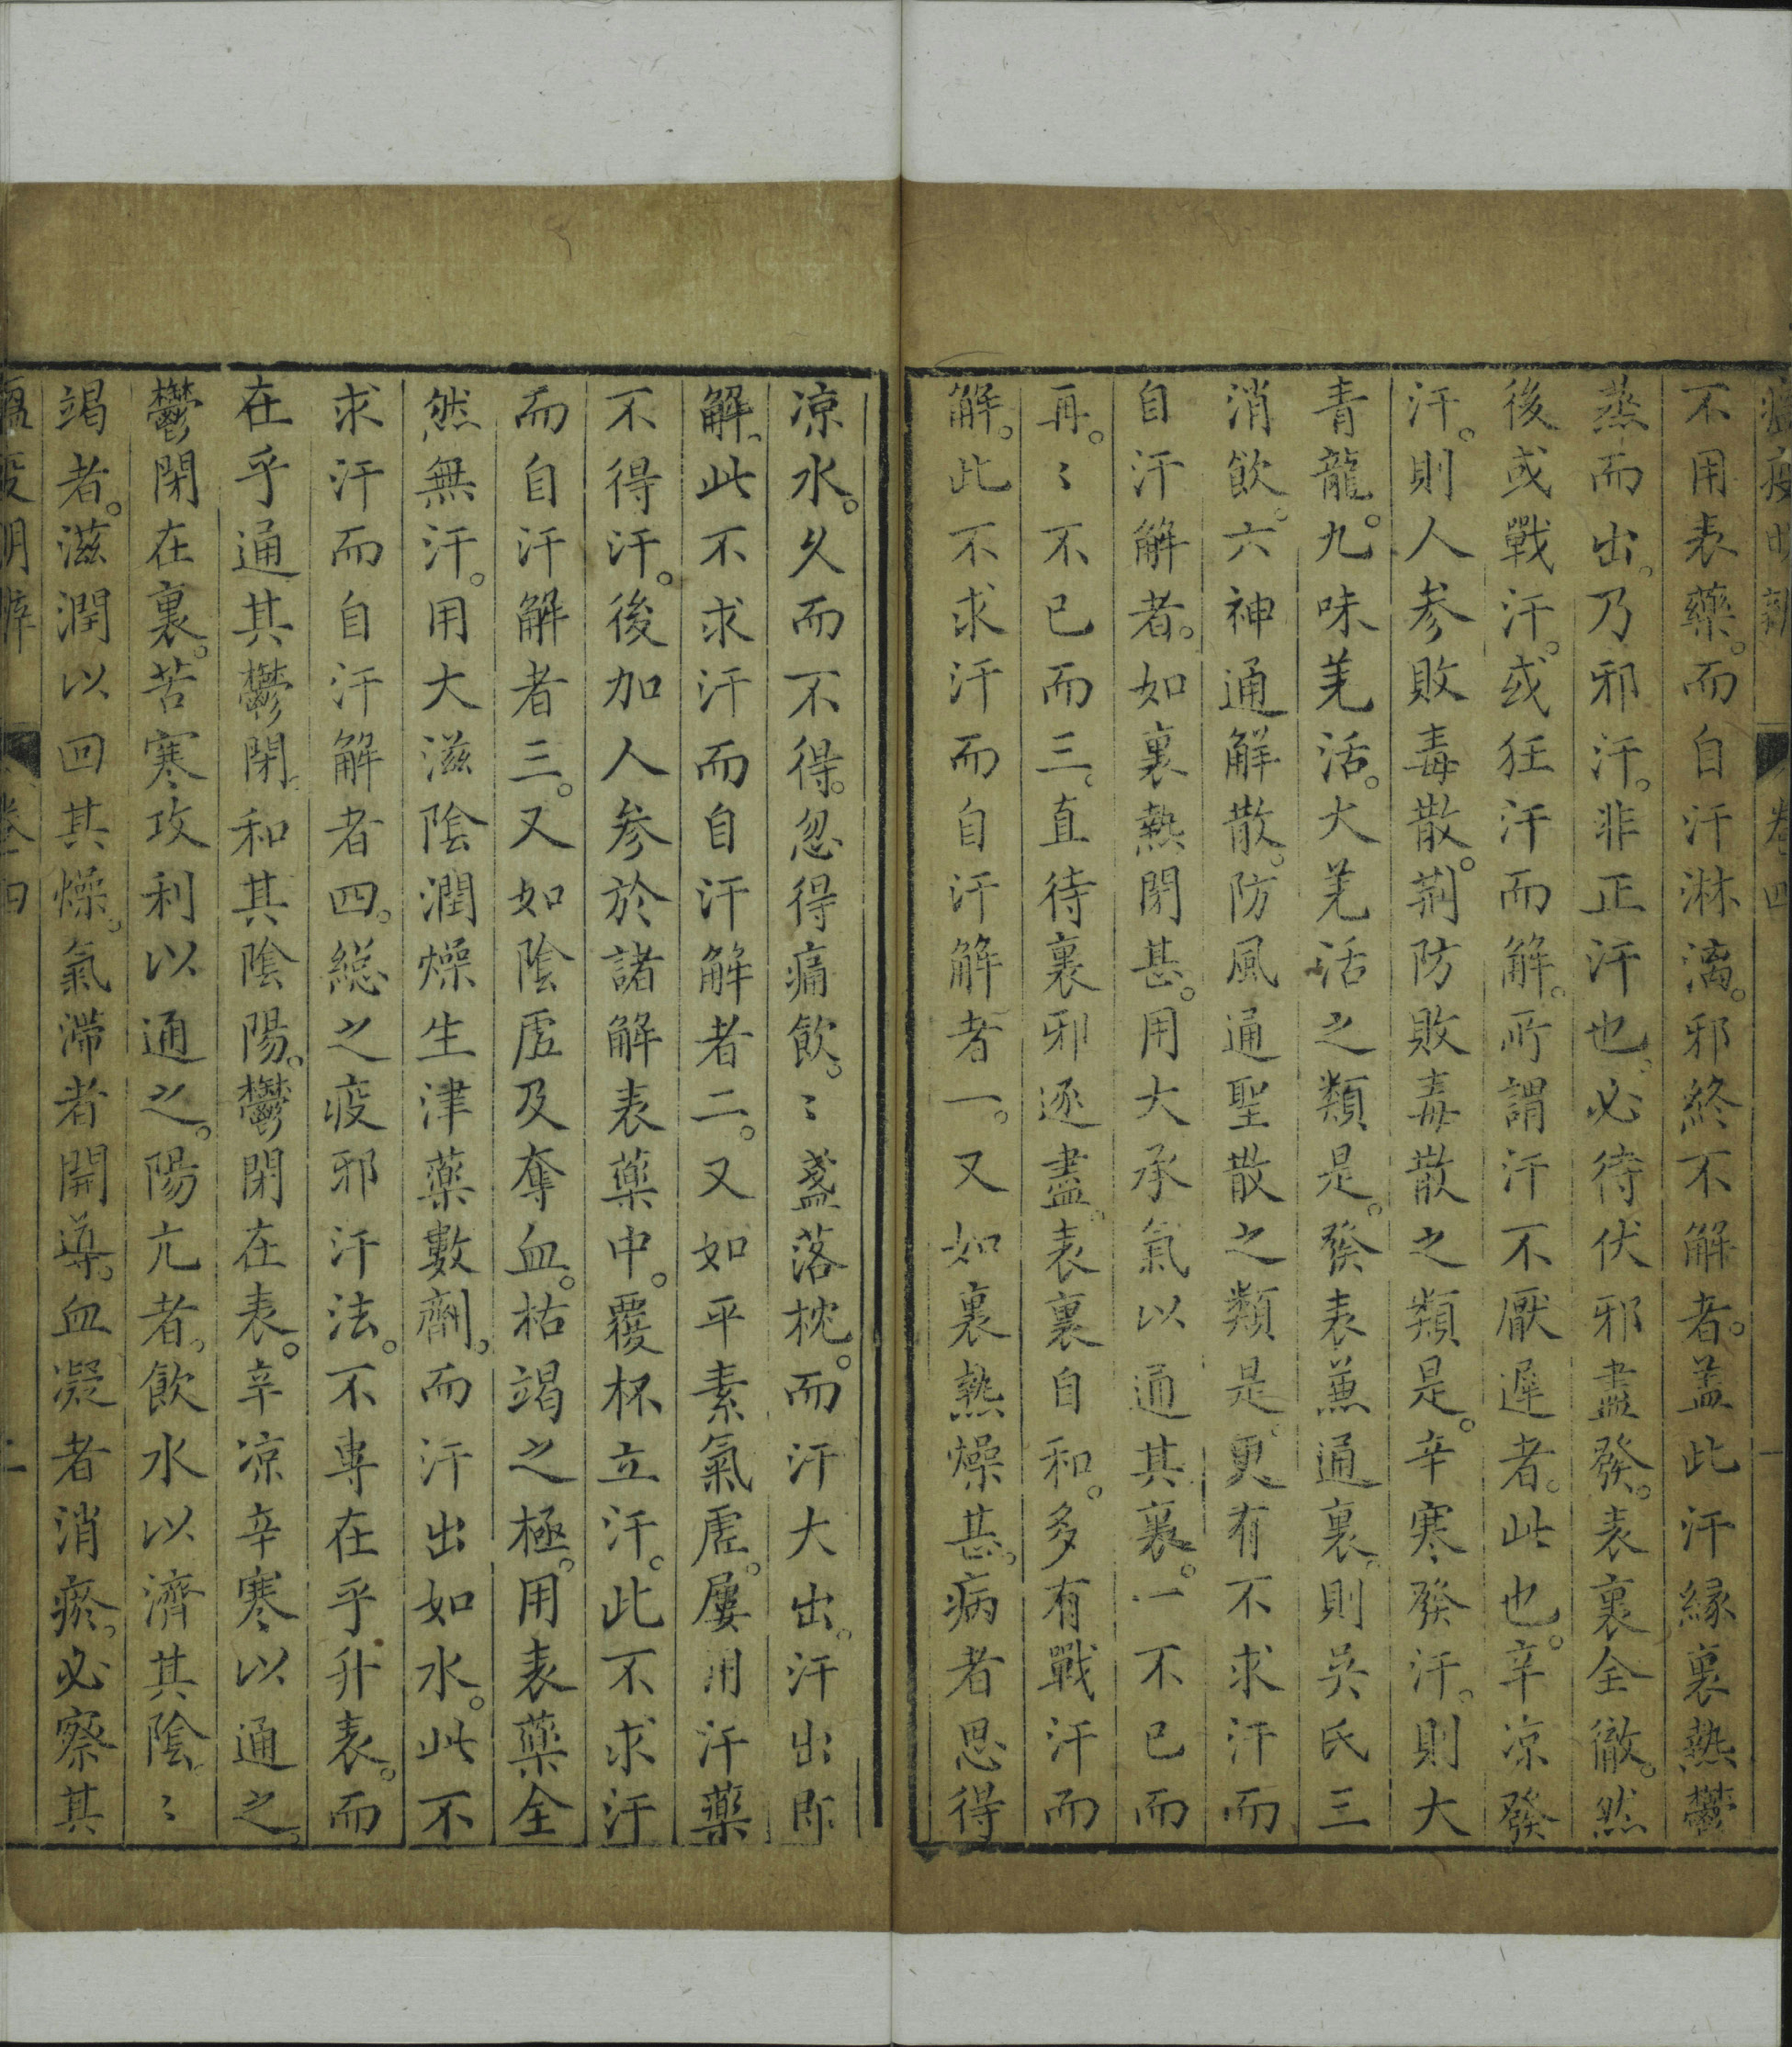 不用表藥。而自汗淋漓。邪終不解者。盖此汗縁裏熱鬱
蒸而出。乃邪汗。非正汗也。必待伏邪盡發。表裏全徹。然
後或戰汗。或狂汗而解。所謂汗不厭遲者。此也。辛凉發
汗。則人参敗毒散。荊防敗毒散之類是。辛寒發汗。則大
青龍。九味羌活。大羌活之類是。發表兼通裏。則吳氏三
消飲。六神通解散。防風通聖散之類是。更有不求汗而
自汗解者。如裏熱閉甚。用大承氣以通其裏。一不已而
再。〻不已而三。直待裏邪逐盡。表裏自和。多有戰汗而
解。此不求汗而自汗解者一。又如裏熱燥甚。病者思得
凉水。久而不得。忽得痛飲。〻盞落枕。而汗大出。汗出即
解。此不求汗而自汗解者二。又如平素氣虛。屢用汗藥
不得汗。後加人参於諸解表藥中。覆杯立汗。此不求汗
而自汗解者三。又如陰虛及奪血。枯竭之極。用表藥全
然無汗。用大滋陰潤燥生津藥數劑。而汗出如水。此不
求汗而自汗解者四。総之疫邪汗法。不專在乎升表。而
在乎通其鬱閉。和其陰陽。鬱閉在表。辛凉辛寒以通之。
鬱閉在裏。苦寒攻利以通之。陽亢者。飲水以濟其陰。〻
竭者。滋潤以回其燥。氣滯者開導。血凝者消瘀。必察其
卷四 二